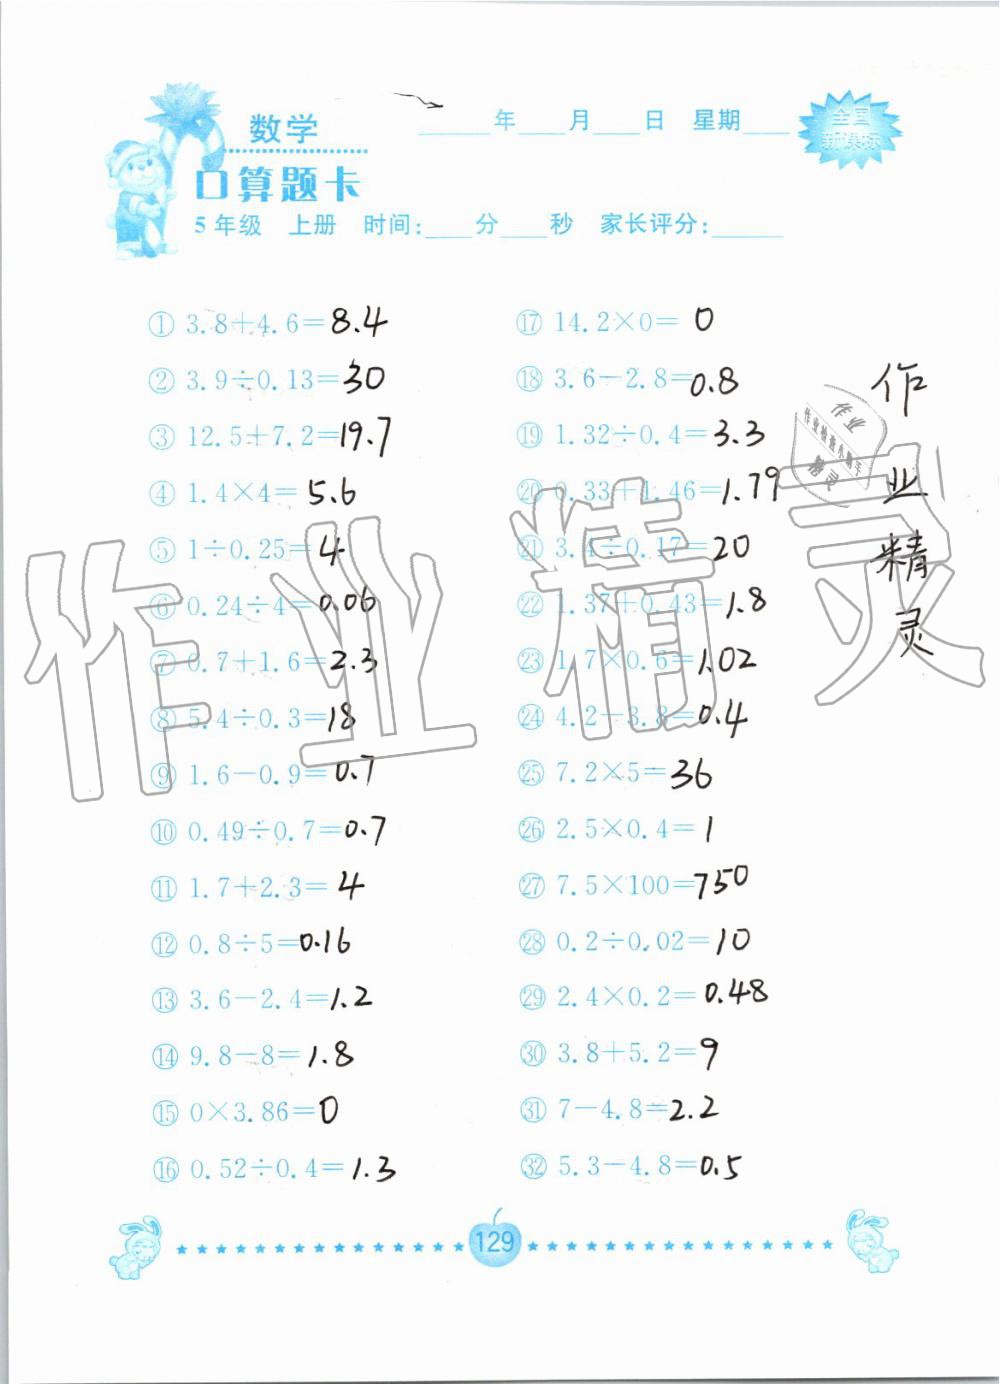 数学
____年____月____日 星期____
全国
新课标
口算题卡
5年级 上册 时间:____分____秒 家长评分:____
① 3.8+4.6=8.4
② 3.9÷0.13=30
③ 12.5+7.2=19.7
④ 1.4×4=5.6
⑤ 1÷0.25=4
⑥ 0.24÷4=0.06
⑦ 0.7+1.6=2.3
⑧ 5.4÷0.3=18
⑨ 1.6-0.9=0.7
⑩ 0.49÷0.7=0.7
⑪ 1.7+2.3=4
⑫ 0.8÷5=0.16
⑬ 3.6-2.4=1.2
⑭ 9.8-8=1.8
⑮ 0×3.86=0
⑯ 0.52÷0.4=1.3
⑰ 14.2×0=0
⑱ 3.6-2.8=0.8
⑲ 1.32÷0.4=3.3
⑳ 0.33+1.46=1.79
㉑ 3.4÷0.17=20
㉒ 1.37+0.43=1.8
㉓ 1.7×0.6=1.02
㉔ 4.2-3.8=0.4
㉕ 7.2×5=36
㉖ 2.5×0.4=1
㉗ 7.5×100=750
㉘ 0.2÷0.02=10
㉙ 2.4×0.2=0.48
㉚ 3.8+5.2=9
㉛ 7-4.8=2.2
㉜ 5.3-4.8=0.5
作业精灵
作业
作业检查小助手
精灵
作业精灵
129